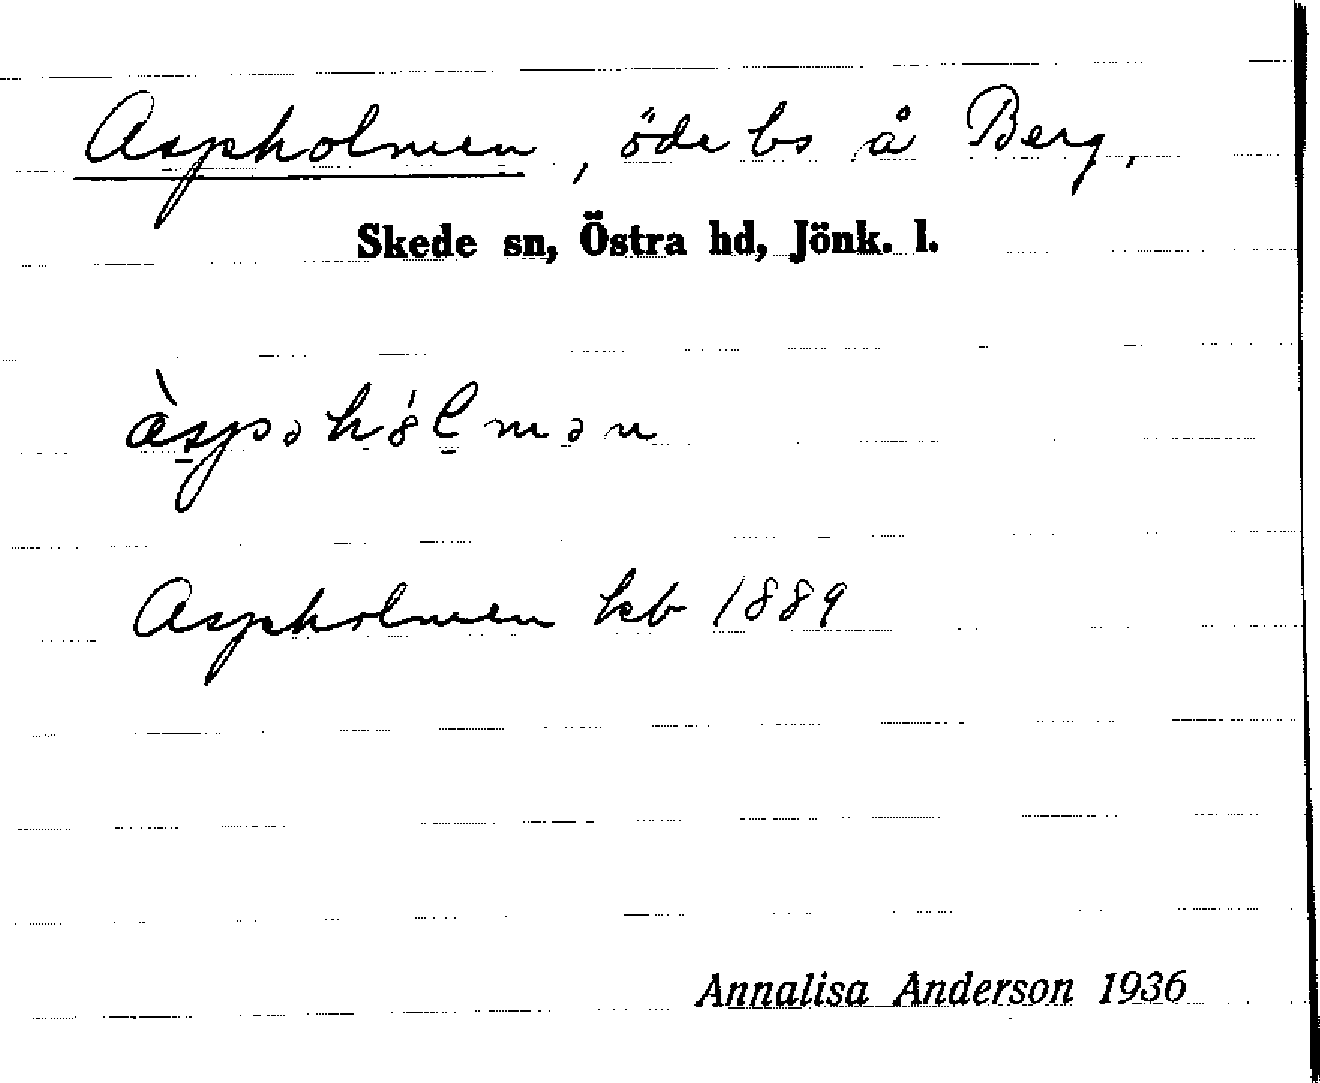 Aspholmen, öde bs å Berg,
Skede sn, Östra hd, Jönk. l.
àspəhó̤lmən
Aspholmen kb 1889
Annalisa Anderson 1936